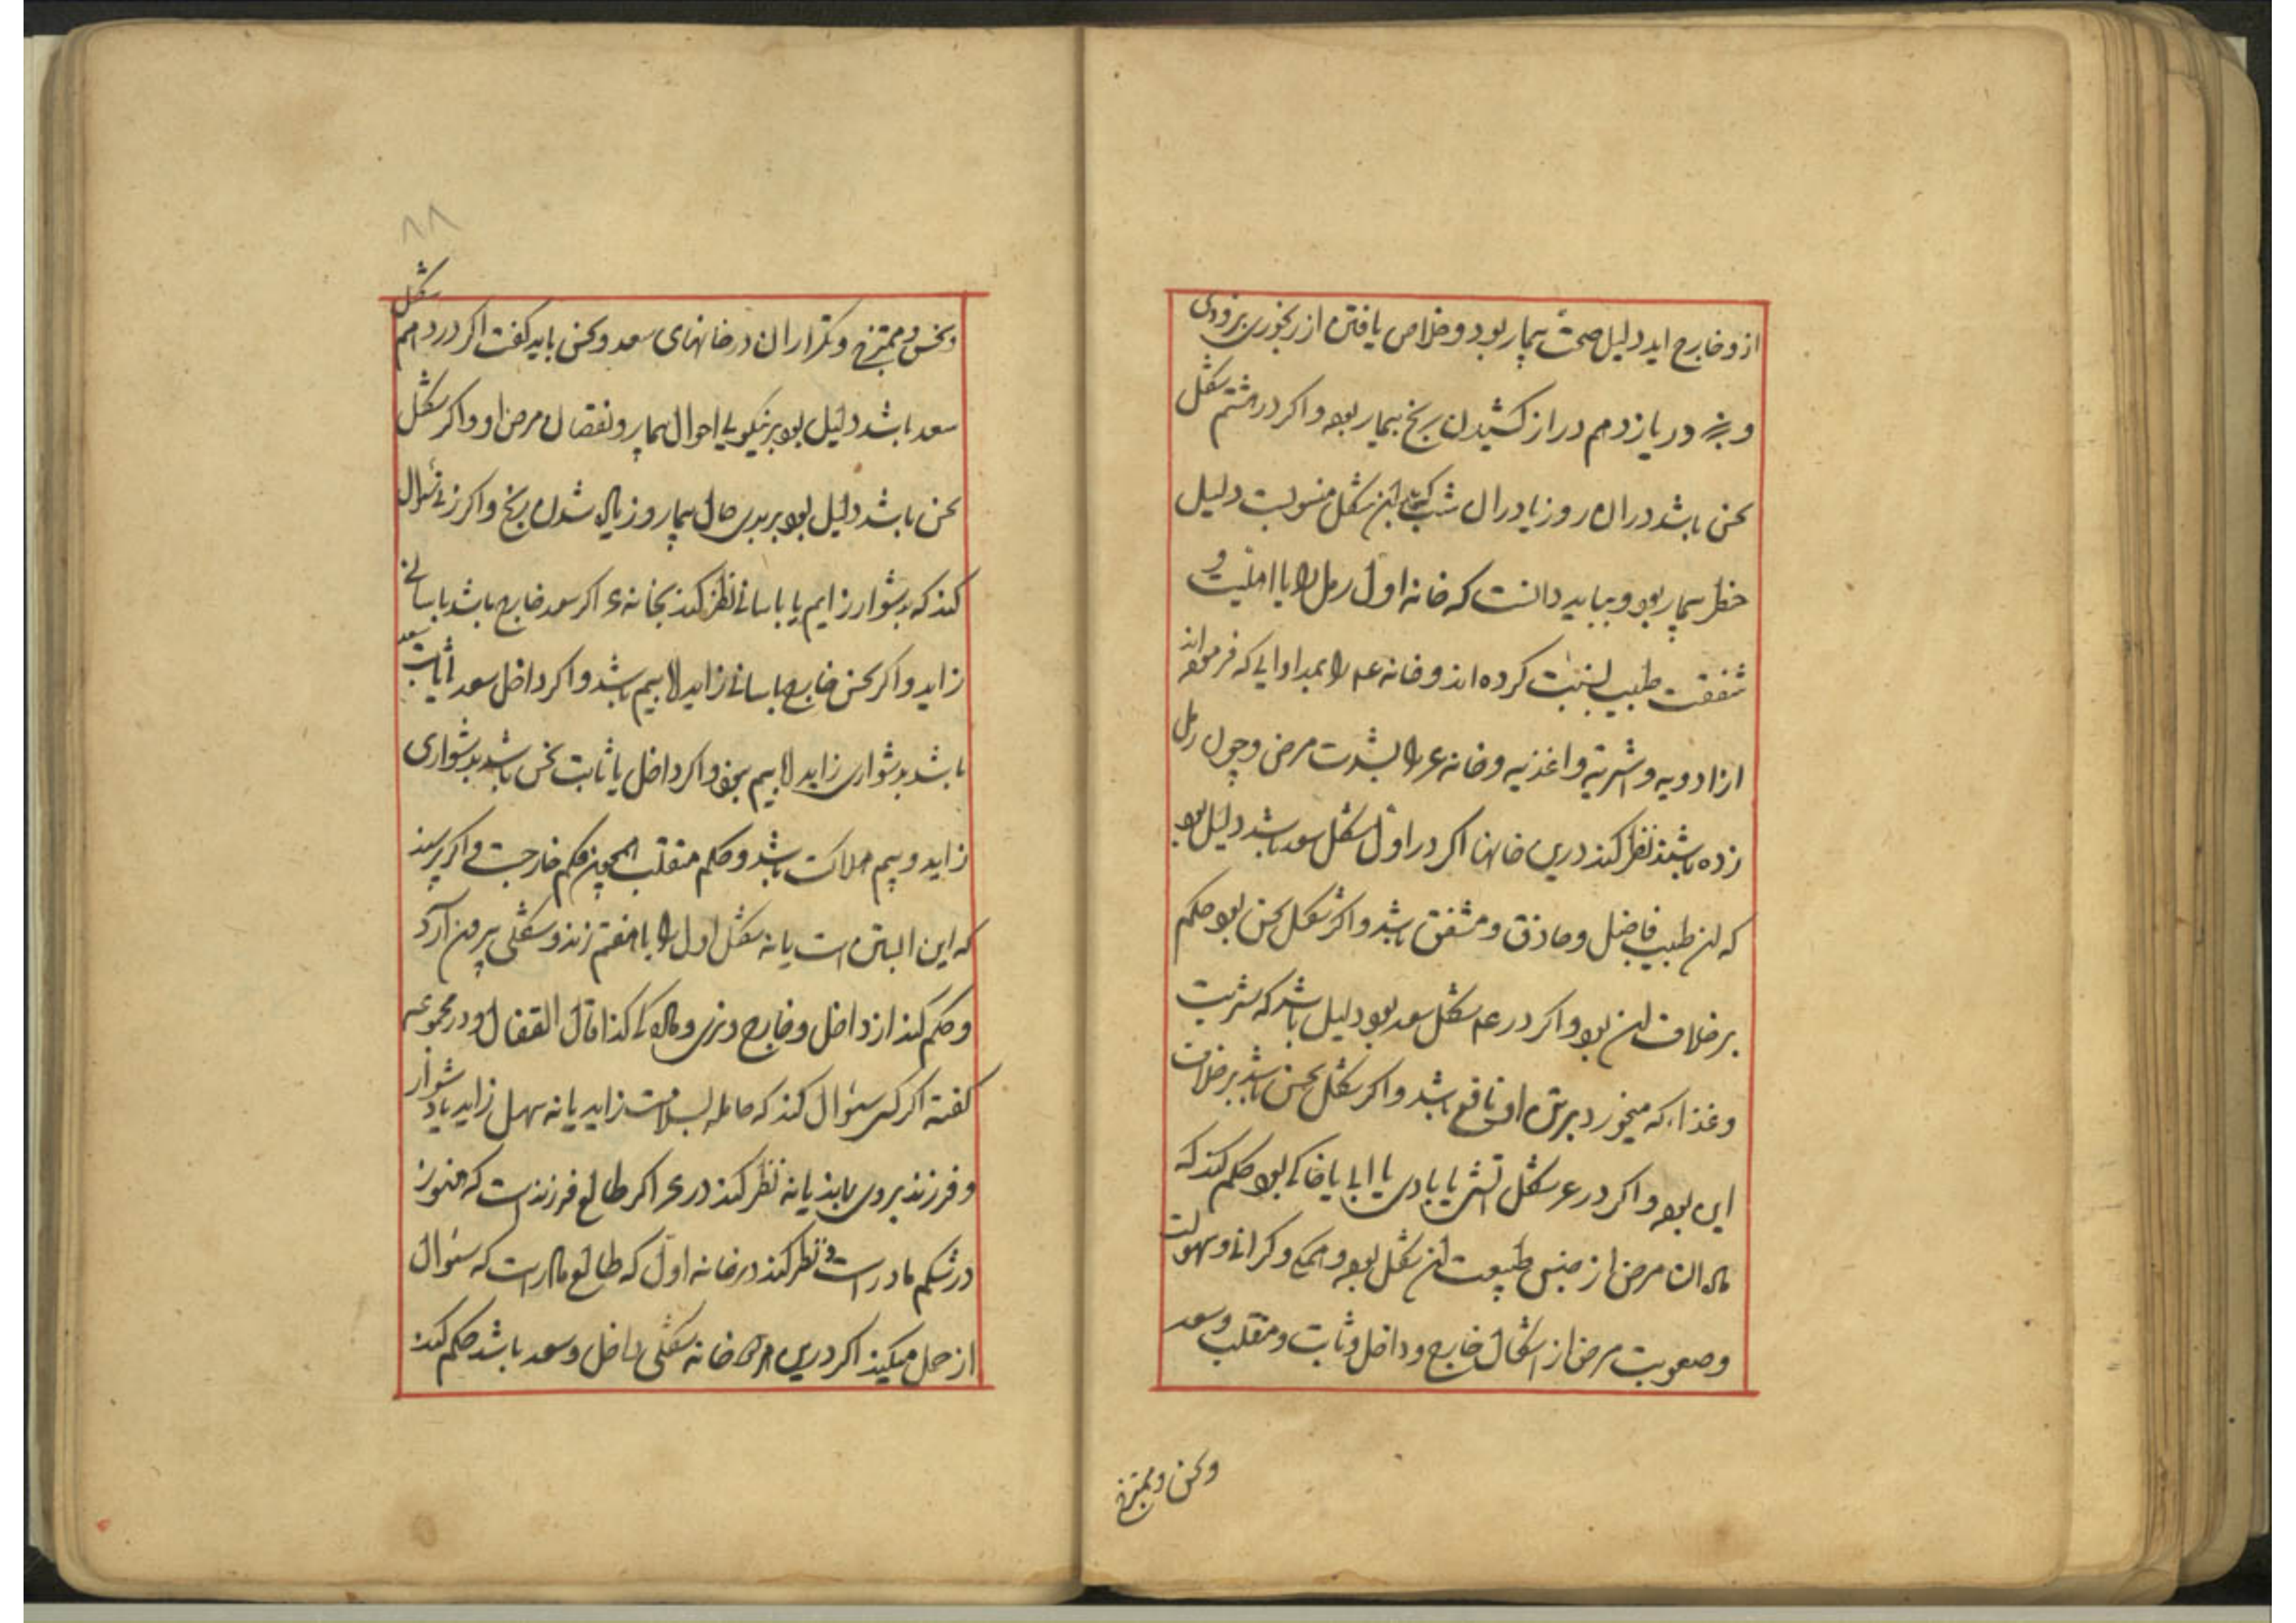 از و خارج اید دلیل صحت بیمار بود و خلاص یافتن از رنجوری بزودی
و در یازدهم دراز کشیدن رنج بیمار بود و اکر در هشتم شکل
نحس باشد دران روز یا دران شب که باین شکل منسوبست دلیل
خطر بیمار بود و بباید دانست که خانه اول رمل را با اهلیت و
شفقت طبیب نسبت کرده اند و خانه را بمداوایی که فرموده اند
از ادویه و اشربه و اغذیه و خانه را بشدت مرض و چون رمل
زده باشند نظر کنند درین خانها اکر در اول شکل سعد باشد دلیل بود
که ان طبیب فاضل و حاذق و مشفق باشد و اکر شکل نحس بود حکم
برخلاف ان بود و اکر در شکل سعد بود دلیل باشد که شربت
و غذا که میخورد برش اوفی نافع باشد و اکر شکل نحس باشد برخلاف
این بود و اکر در شکل آتشی یا بادی یا ابی یا خاکی بود حکم کنند که
ماده ان مرض از جنس طبیعت ان شکل بود و همچنین کرانی و سهولت
و صعوبت مرض از اشکال خارج و داخل و ثابت و منقلب و سعد
و نحس و ممتزج
۸۸
و نحس و ممتزج و تکرار ان در خانهای سعد و نحس باید کفت اکر در دهم شکل
سعد باشد دلیل بود بر نیکویی احوال بیمار و نقصان مرض او و اکر شکل
نحس باشد دلیل بود بر بدی حال بیمار و زیاده شدن رنج و اکر زنی سوال
کند که بدشوار زایم یا باسانی نظر کنند بخانه ۶ اکر سعد خارج باشد باسانی
زاید و اکر نحس خارج باسانی زاید اما بیم باشد و اکر داخل سعد یا ثابت سعد
باشد بدشواری زاید اما بیم نبود و اکر داخل یا ثابت نحس باشد بدشواری
زاید و بیم هلاکت باشد و حکم منقلب همچون حکم خارجست و اکر پرسند
که این ابستن است یا نه شکل اول را با هفتم زند و شکلی بیرون آرد
و حکم کند از داخل و خارج و نری و مادکی کذا قال القفال و در مجموعه
کفته اکر کسی سئوال کند که حامله بسلامت زاید یا نه سهل زاید یا دشوار
و فرزند بروی بماند یا نه نظر کنند در اکر طالع فرزند است که هنوز
در شکم مادر است و نظر کنند در خانه اول که طالع مادر است که سئوال
از حمل میکند اکر درین هر دو خانه شکلی داخل و سعد باشد حکم کنند